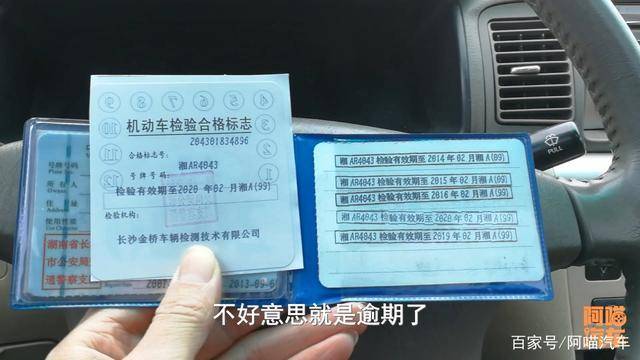 机动车检验合格标志
204301834896
合格标志号:
湘AR4043
号牌号码:
检验有效期至2020 年02 月湘A(99)
检验机构:
长沙金桥车辆检测技术有限公司
号牌号码
所有人
住址
使用性质
湖南省长
市公安局
通警察支
2013-09-0
湘 AR4043 检验有效期至 2014 年 02 月湘 A(09)
湘 AR4043 检验有效期至 2015 年 02 月湘 A(09)
湘 AR4043 检验有效期至 2016 年 02 月湘 A(09)
湘 AR4043 检验有效期至 2020 年 02 月湘 A(99)
湘 AR4043 检验有效期至 2019 年 02 月湘 A(99)
PULL
不好意思就是逾期了
阿喵
汽车
百家号/阿喵汽车